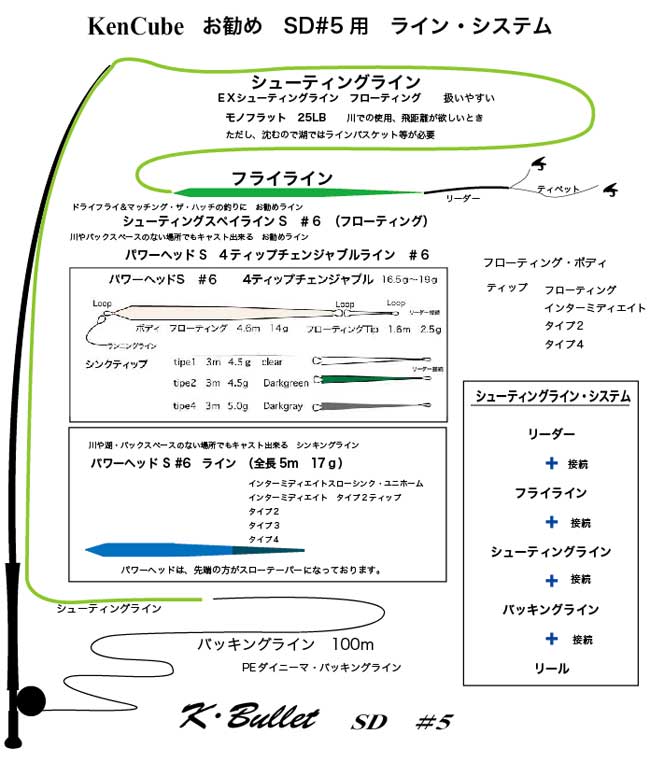 KenCube お勧め SD#5用 ライン・システム
シューティングライン
EXシューティングライン フローティング 扱いやすい
モノフラット 25LB 川での使用、飛距離が欲しいとき
ただし、沈むので湖ではラインバスケット等が必要
フライライン
リーダー
ティペット
ドライフライ&マッチング・ザ・ハッチの釣りに お勧めライン
シューティングスペイラインS #6 (フローティング)
川やバックスペースのない場所でもキャスト出来る お勧めライン
パワーヘッドS 4ティップチェンジャブルライン #6
フローティング・ボディ
ティップ フローティング
インターミディエイト
タイプ2
タイプ4
パワーヘッドS #6 4ティップチェンジャブル 16.5g~19g
Loop
Loop
Loop
リーダー接続
ボディ フローティング 4.6m 14g フローティングTip 1.6m 2.5g
ランニングライン
シンクティップ
tipe1 3m 4.5g clear
リーダー接続
tipe2 3m 4.5g Darkgreen
tipe4 3m 5.0g Darkgray
川や湖・バックスペースのない場所でもキャスト出来る シンキングライン
パワーヘッドS #6 ライン (全長5m 17g)
インターミディエイトスローシンク・ユニホーム
インターミディエイト タイプ2ティップ
タイプ2
タイプ3
タイプ4
パワーヘッドは、先端の方がスローテーパーになっております。
シューティングライン・システム
リーダー
+ 接続
フライライン
+ 接続
シューティングライン
+ 接続
バッキングライン
+ 接続
リール
シューティングライン
バッキングライン 100m
PEダイニーマ・バッキングライン
K・Bullet SD #5